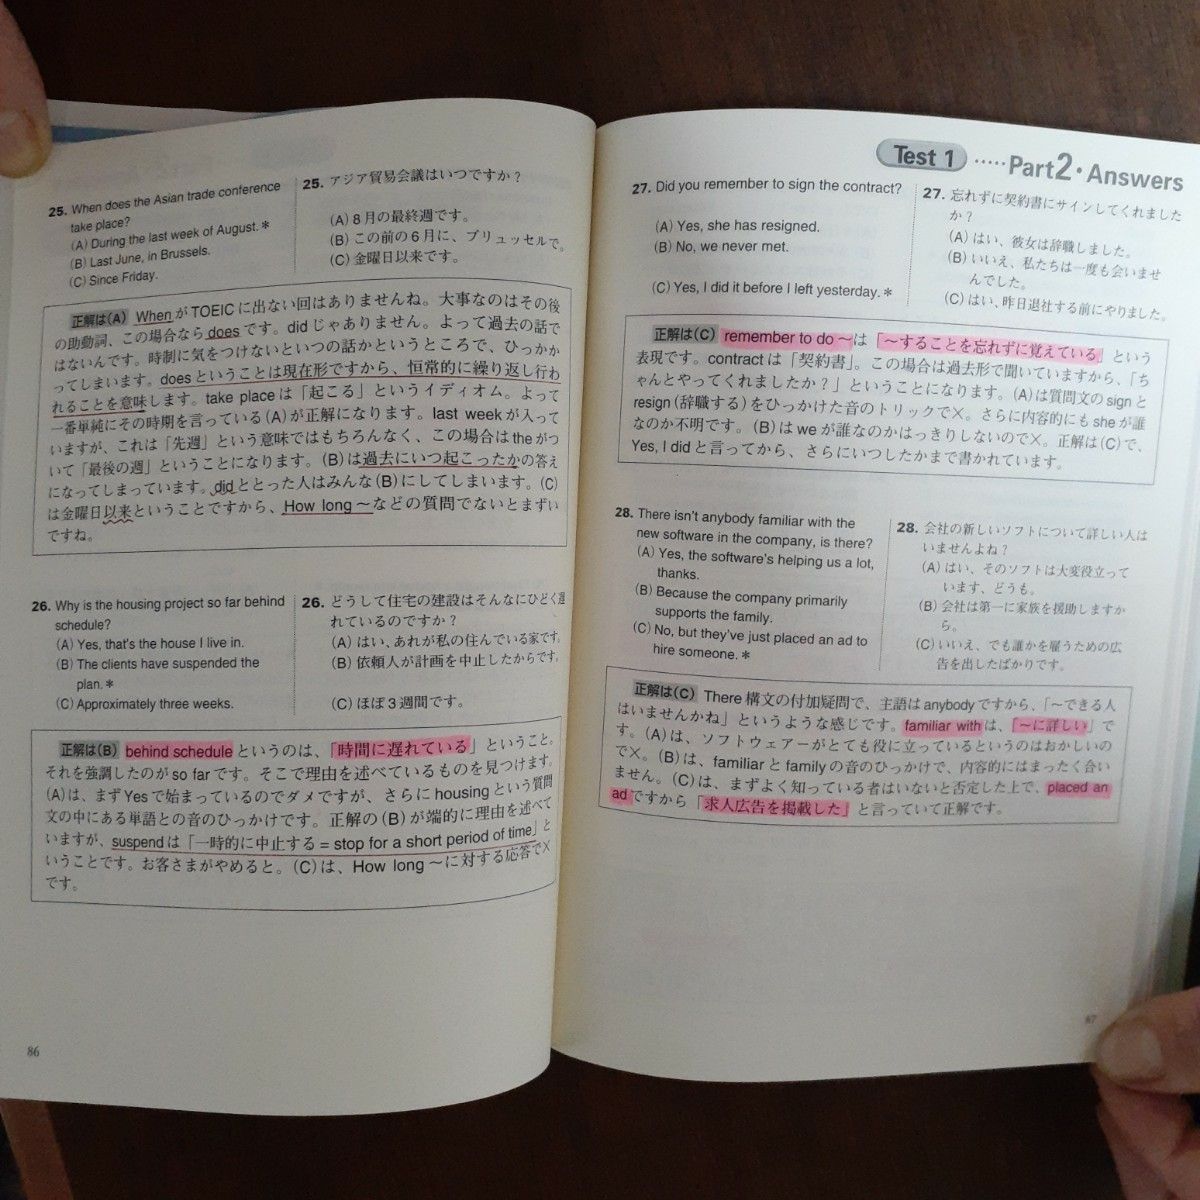 25. When does the Asian trade conference
take place?
(A) During the last week of August.＊
(B) Last June, in Brussels.
(C) Since Friday.
25. アジア貿易会議はいつですか？
(A) 8月の最終週です。
(B) この前の6月に、ブリュッセルで。
(C) 金曜日以来です。
正解は(A) WhenがTOEICに出ない回はありませんね。大事なのはその後
の助動詞、この場合ならdoesです。didじゃありません。よって過去の話で
はないんです。時制に気をつけないといつの話かというところで、ひっかか
ってしまいます。doesということは現在形ですから、恒常的に繰り返し行わ
れることを意味します。take placeは「起こる」というイディオム。よって
一番単純にその時期を言っている(A)が正解になります。last weekが入って
いますが、これは「先週」という意味ではもちろんなく、この場合はtheがつ
いて「最後の週」ということになります。(B)は過去にいつ起こったかの答え
になってしまっています。didととった人はみんな(B)にしてしまいます。(C)
は金曜日以来ということですから、How long～などの質問でないとまずい
ですね。
26. Why is the housing project so far behind
schedule?
(A) Yes, that's the house I live in.
(B) The clients have suspended the
plan.＊
(C) Approximately three weeks.
26. どうして住宅の建設はそんなにひどく遅
れているのですか？
(A) はい、あれが私の住んでいる家です。
(B) 依頼人が計画を中止したからです。
(C) ほぼ3週間です。
正解は(B) behind scheduleというのは、「時間に遅れている」ということ。
それを強調したのがso farです。そこで理由を述べているものを見つけます。
(A)は、まずYesで始まっているのでダメですが、さらにhousingという質問
文の中にある単語との音のひっかけです。正解の(B)が端的に理由を述べて
いますが、suspendは「一時的に中止する＝stop for a short period of time」と
いうことです。お客さまがやめると。(C)は、How long～に対する応答で×
です。
86
Test 1 ····· Part2・Answers
27. Did you remember to sign the contract?
(A) Yes, she has resigned.
(B) No, we never met.
(C) Yes, I did it before I left yesterday.＊
27. 忘れずに契約書にサインしてくれました
か？
(A) はい、彼女は辞職しました。
(B) いいえ、私たちは一度も会いませ
んでした。
(C) はい、昨日退社する前にやりました。
正解は(C) remember to do～は「～することを忘れずに覚えている」という
表現です。contractは「契約書」。この場合は過去形で聞いていますから、「ち
ゃんとやってくれましたか？」ということになります。(A)は質問文のsignと
resign(辞職する)をひっかけた音のトリックで×。さらに内容的にもsheが誰
なのか不明です。(B)はweが誰なのかはっきりしないので×。正解は(C)で、
Yes, I didと言ってから、さらにいつしたかまで書かれています。
28. There isn't anybody familiar with the
new software in the company, is there?
(A) Yes, the software's helping us a lot,
thanks.
(B) Because the company primarily
supports the family.
(C) No, but they've just placed an ad to
hire someone.＊
28. 会社の新しいソフトについて詳しい人は
いませんよね？
(A) はい、そのソフトは大変役立って
います、どうも。
(B) 会社は第一に家族を援助しますか
ら。
(C) いいえ、でも誰かを雇うための広
告を出したばかりです。
正解は(C) There構文の付加疑問で、主語はanybodyですから、「～できる人
はいませんかね」というような感じです。familiar withは、「～に詳しい」で
す。(A)は、ソフトウェアーがとても役に立っているというのはおかしいの
で×。(B)は、familiarとfamilyの音のひっかけで、内容的にはまったく合い
ません。(C)は、まずよく知っている者はいないと否定した上で、placed an
adですから「求人広告を掲載した」と言っていて正解です。
87